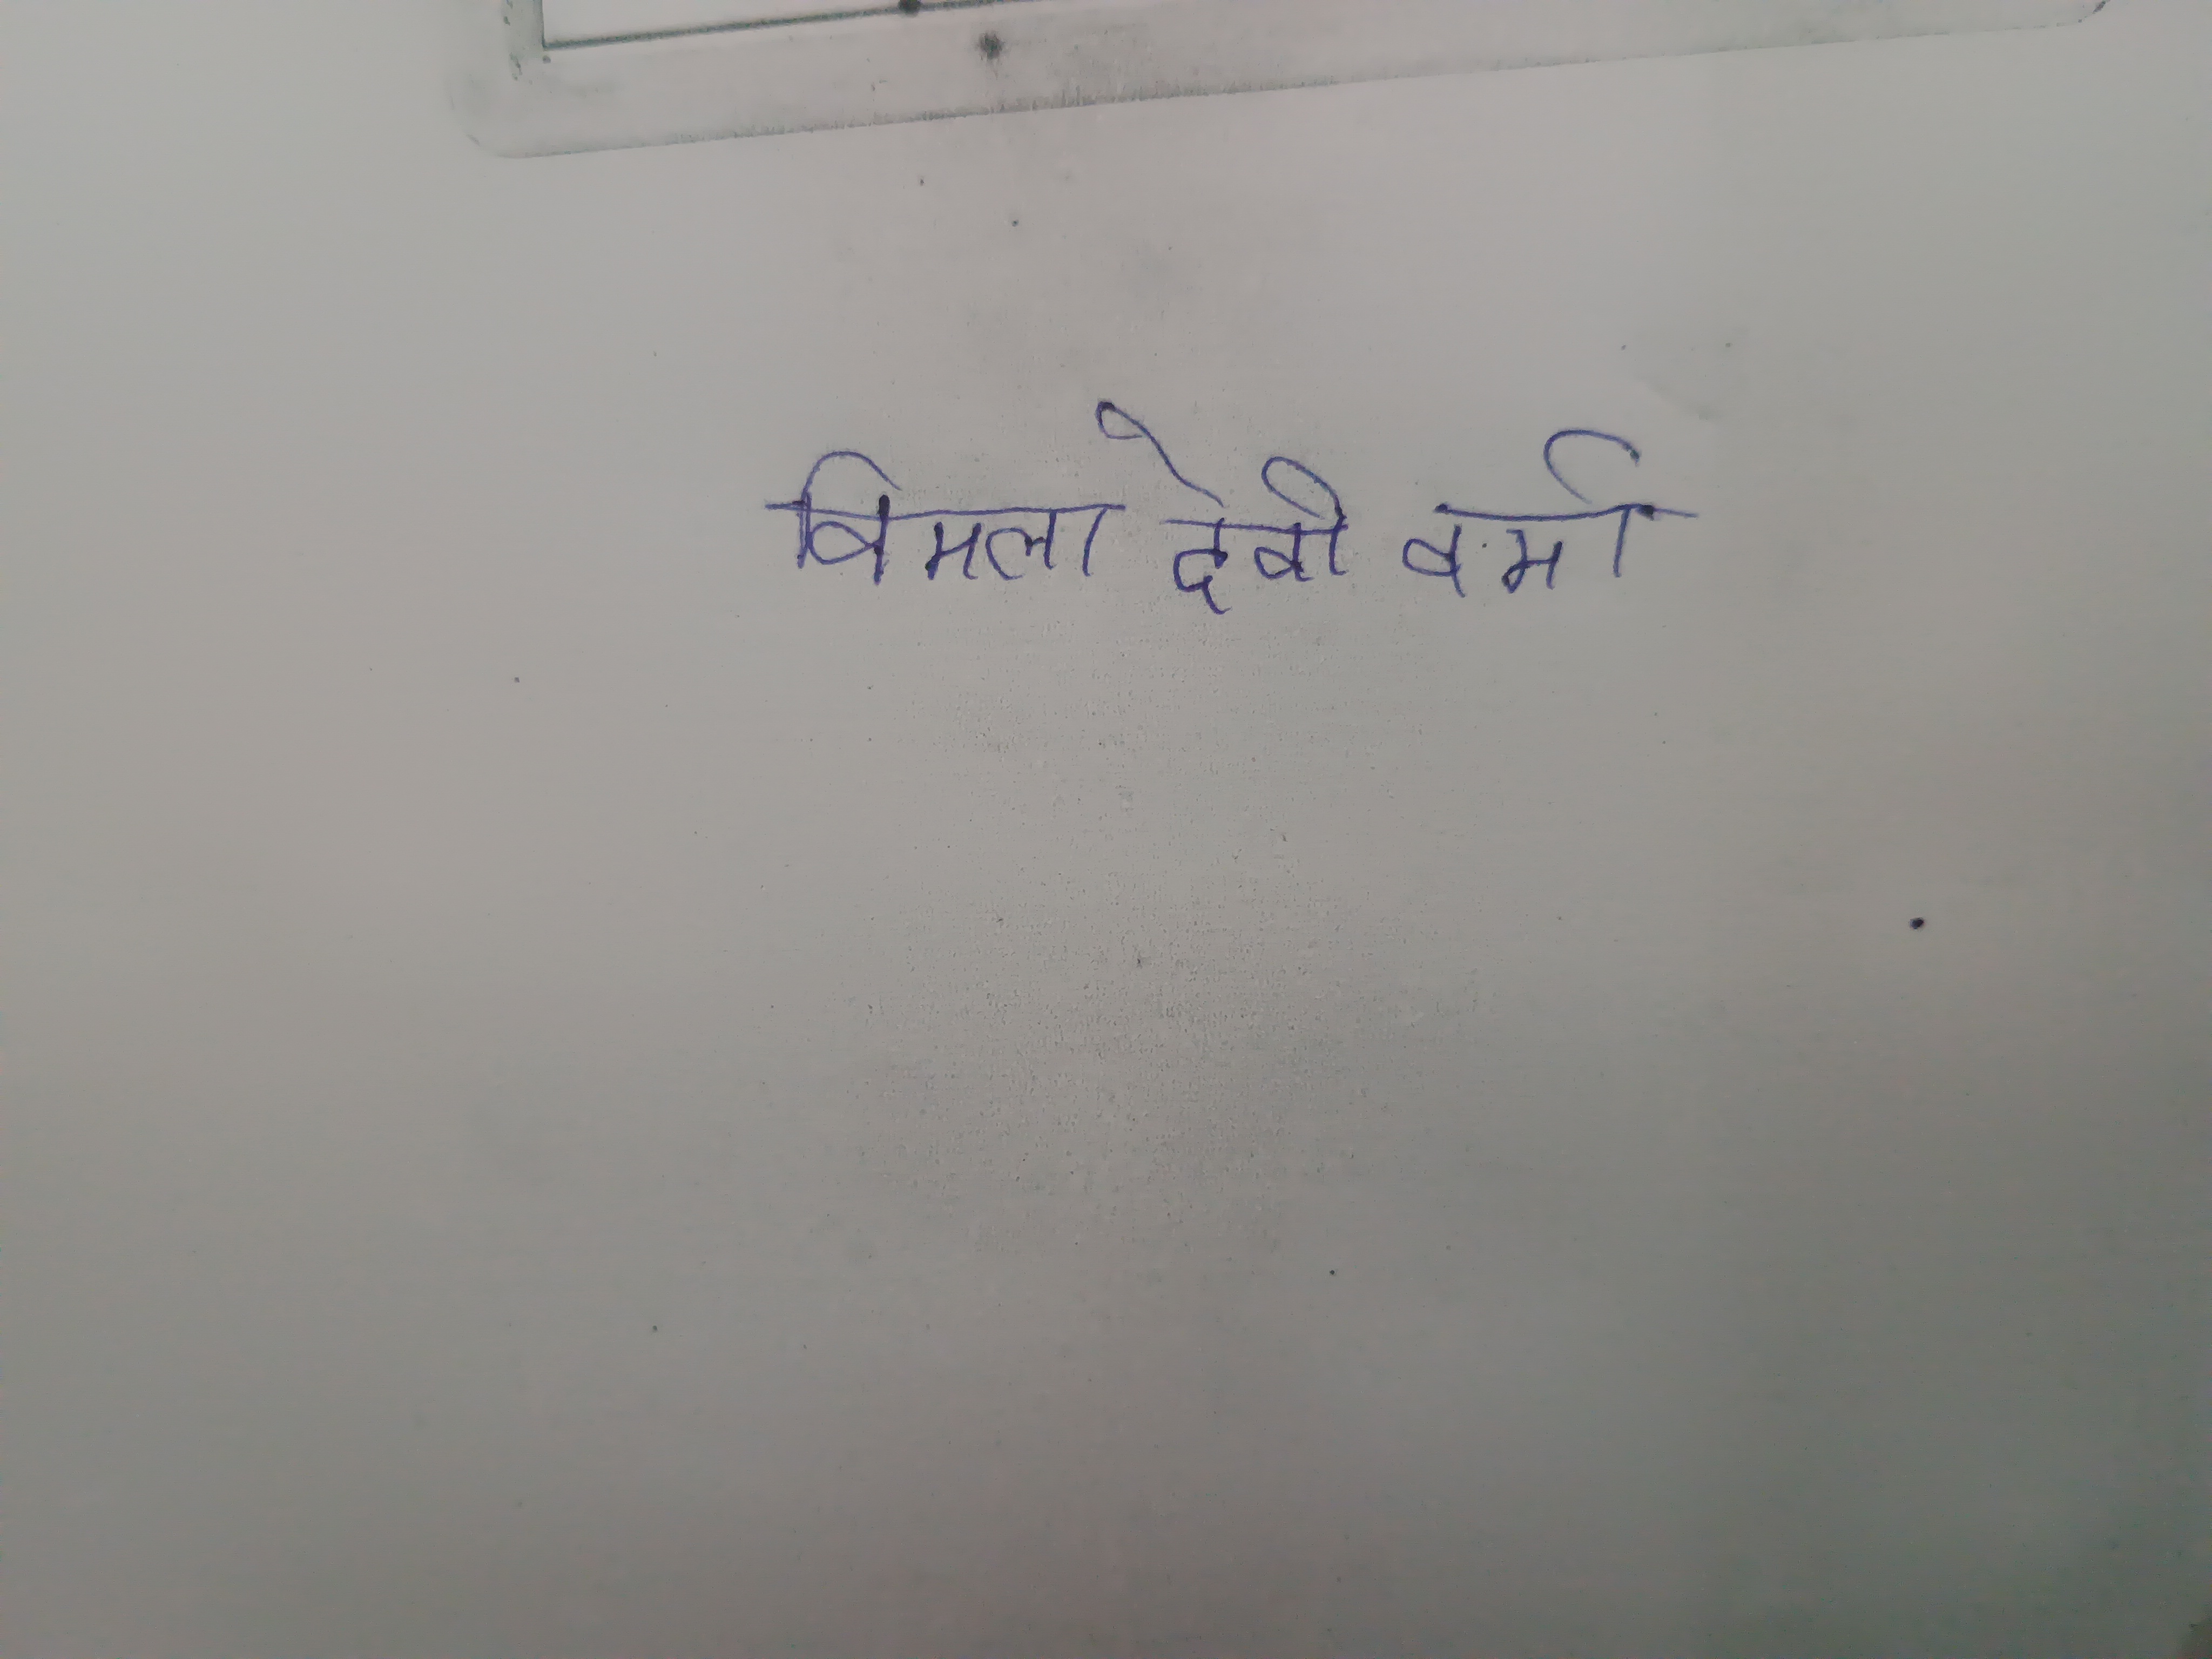 विमला देवी वर्मा